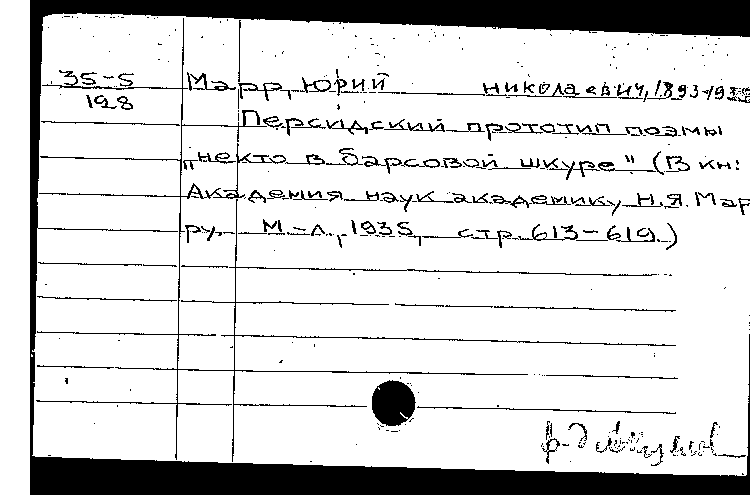 35-5
198
Марр, Юрий Николаевич, 1893-1935
Персидский прототип поэмы
„некто в барсовой шкуре" (В кн:
Академия наук академику Н.Я. Мар
ру. М.-Л., 1935, стр. 613-619.)